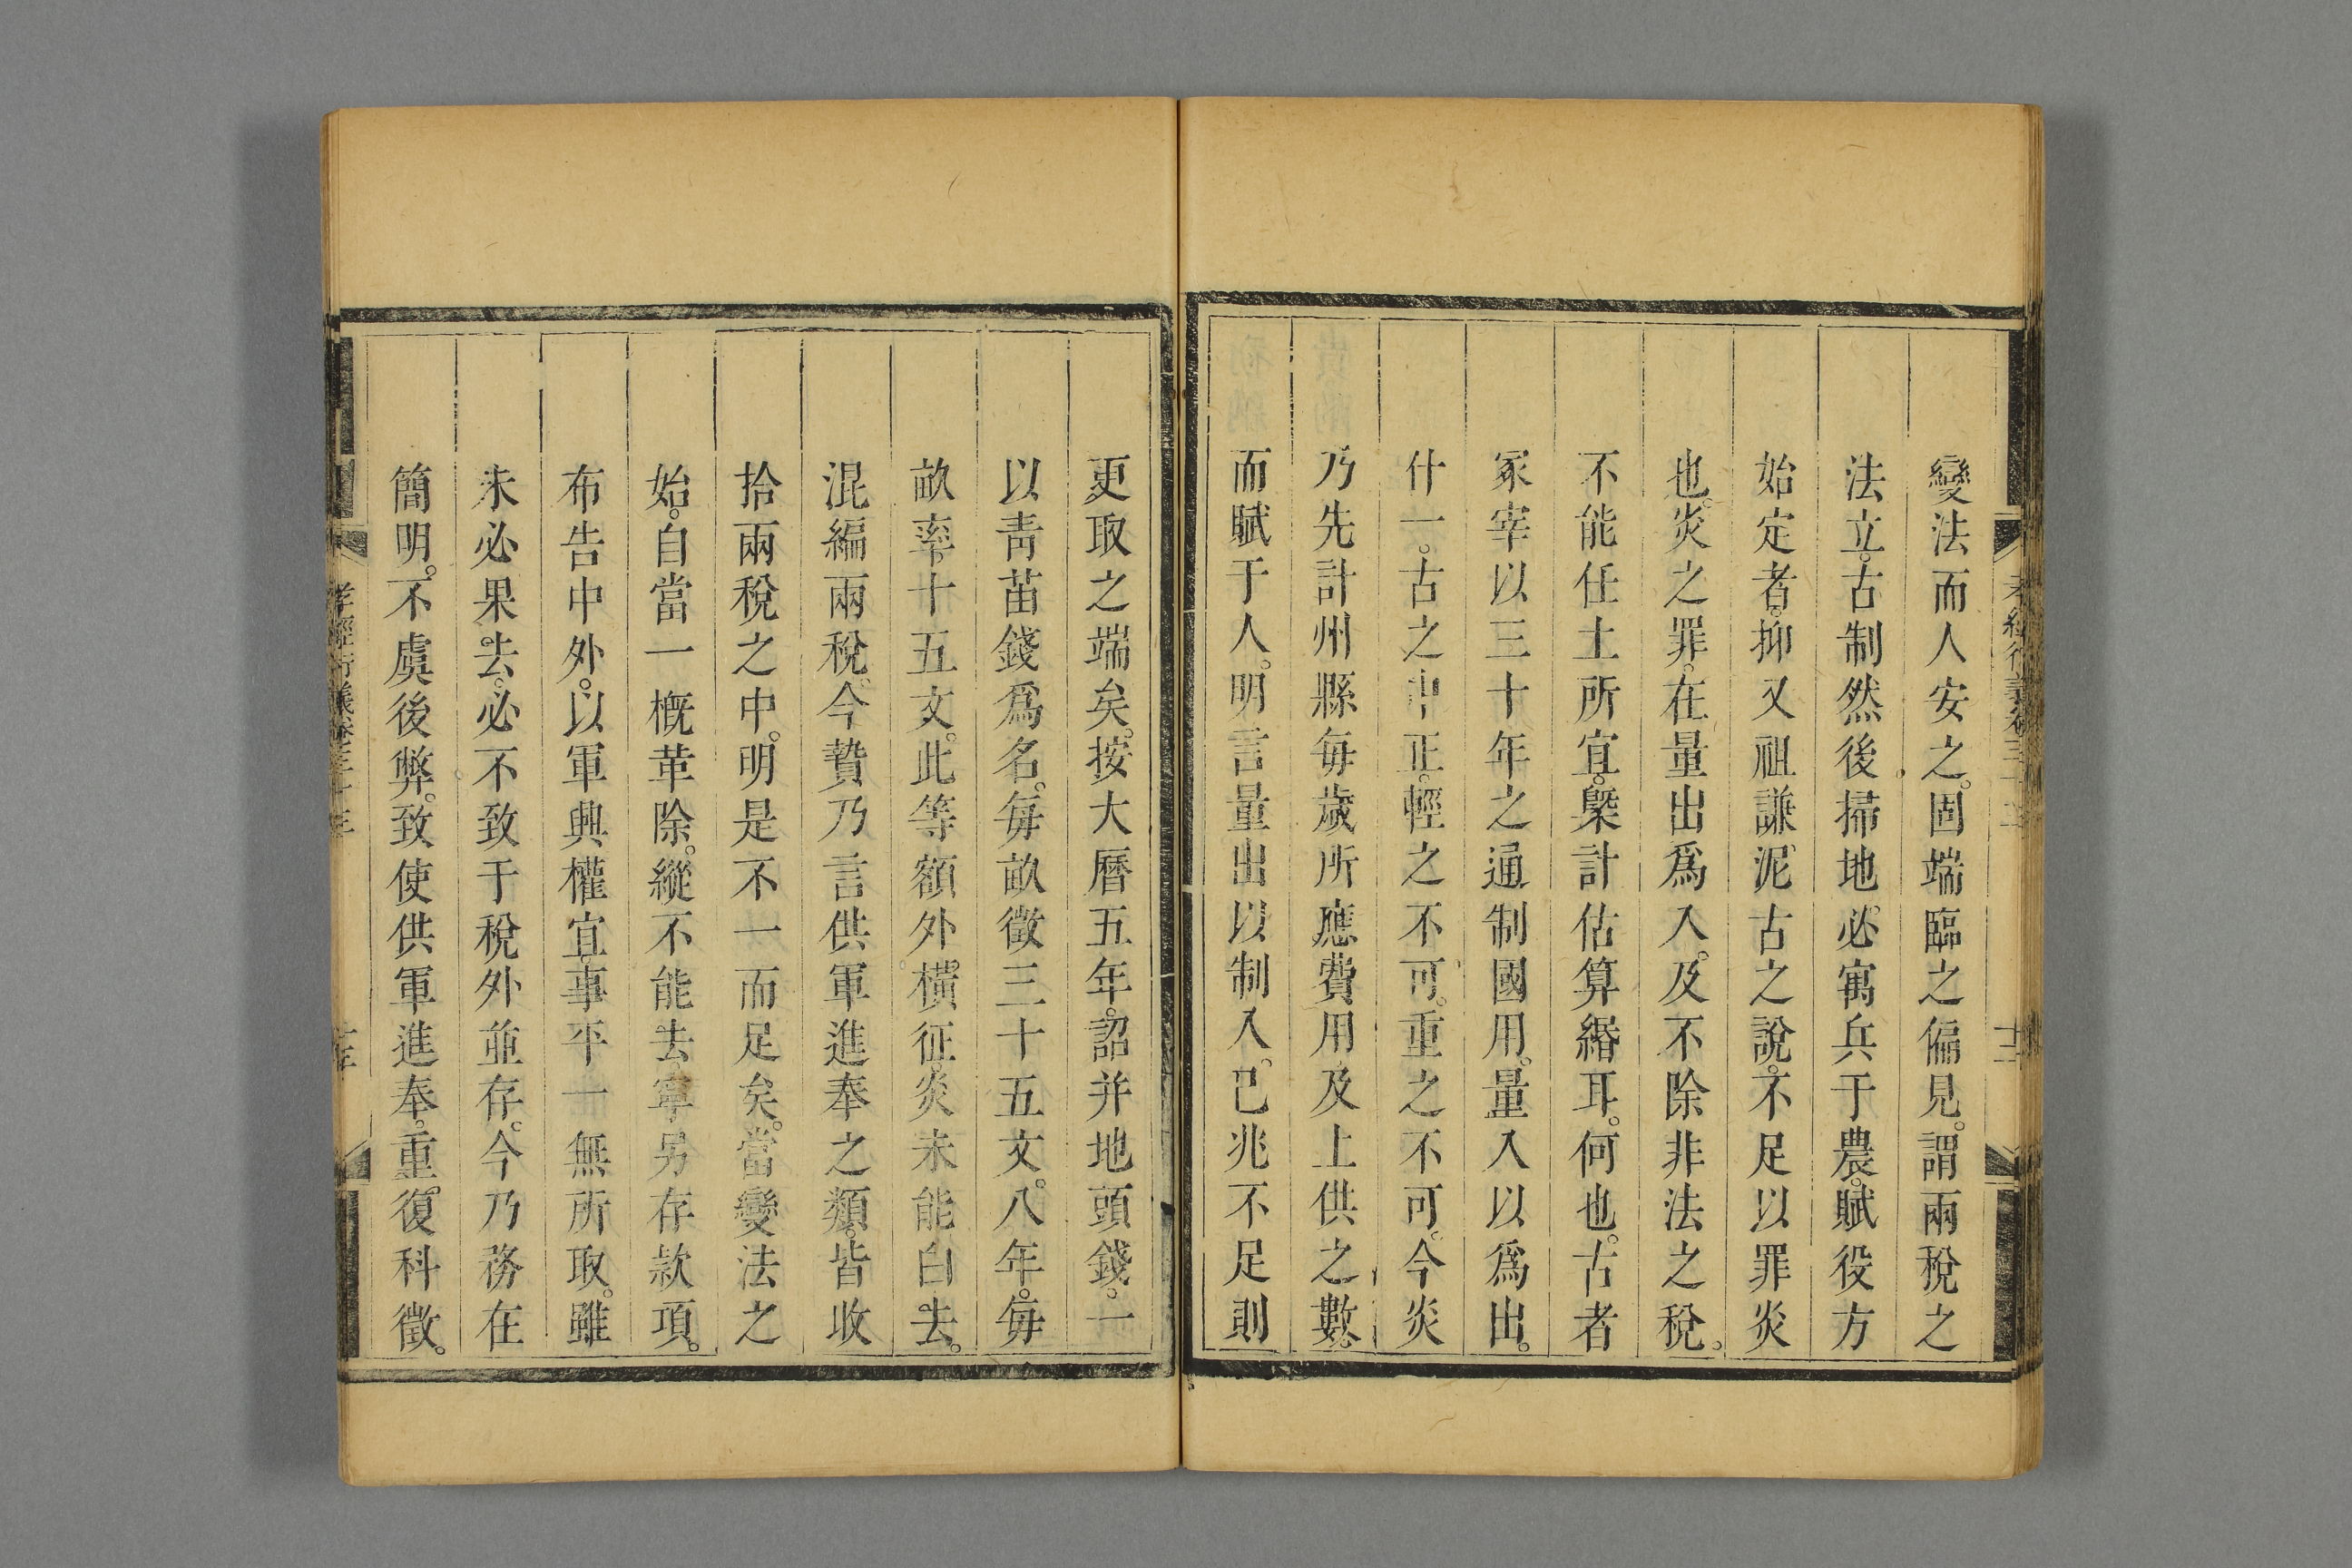 變法而人安之。固端臨之偏見。謂兩稅之
法立。古制然後掃地。必寓兵于農。賦役方
始定者。抑又祖謙泥古之說。不足以罪炎
也。炎之罪。在量出爲入。及不除非法之稅。
不能任土所宜。槩計估算緡耳。何也。古者
冢宰以三十年之通制國用。量入以爲出。
什一。古之中正。輕之不可。重之不可。今炎
乃先計州縣每歲所應費用及上供之數。
而賦于人。明言量出以制入。已兆不足則
更取之端矣。按大曆五年。詔并地頭錢。一
以靑苗錢爲名。每畝徵三十五文。八年。每
畝率十五文。此等額外橫征。炎未能白去。
混編兩稅。今贄乃言供軍進奉之類。皆收
拾兩稅之中。明是不一而足矣。當變法之
始。自當一概革除。縱不能去。寧另存款項。
布告中外。以軍興權宜。事平一無所取。雖
未必果去。必不致于稅外並存。今乃務在
簡明。不虞後弊。致使供軍進奉。重復科徵。
孝經衍義卷三十三